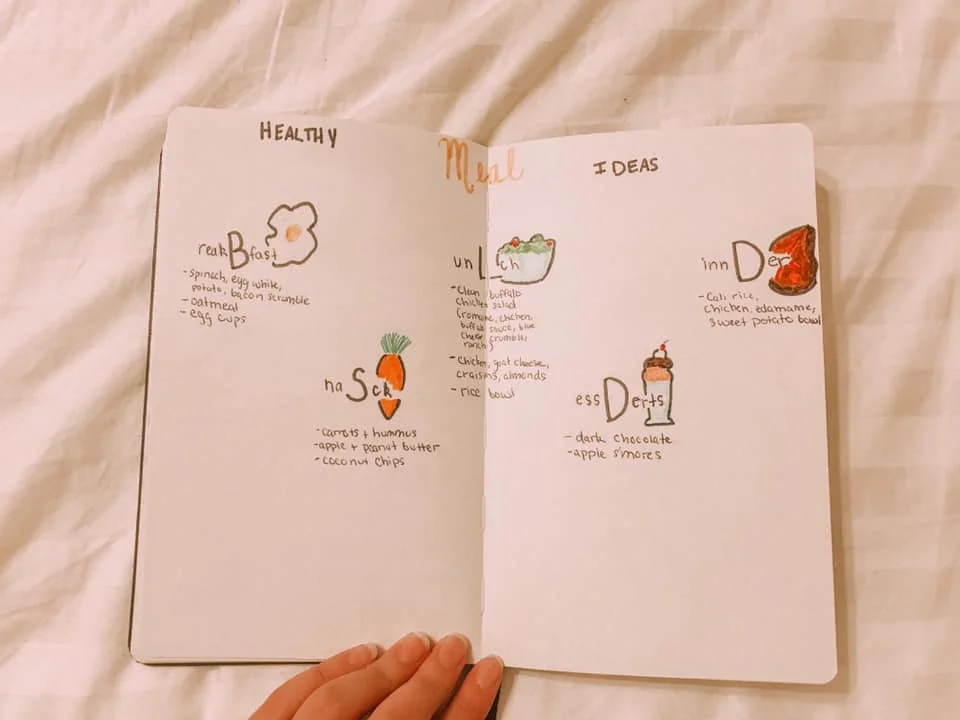 HEALTHY Meal IDEAS
reakBfast
-spinach, egg white,
potato, bacon scramble
-oatmeal
-egg cups
unLch
-Clean buffalo
chicken salad
(romaine, chicken,
buffalo sauce, blue
cheese crumble,
ranch)
-Chicken, goat cheese,
craisins, almonds
-rice bowl
innDer
-Cali rice,
chicken, edamame,
sweet potato bowl
naSck
-carrots + hummus
-apple + peanut butter
-coconut chips
essDerts
-dark chocolate
-apple s'mores